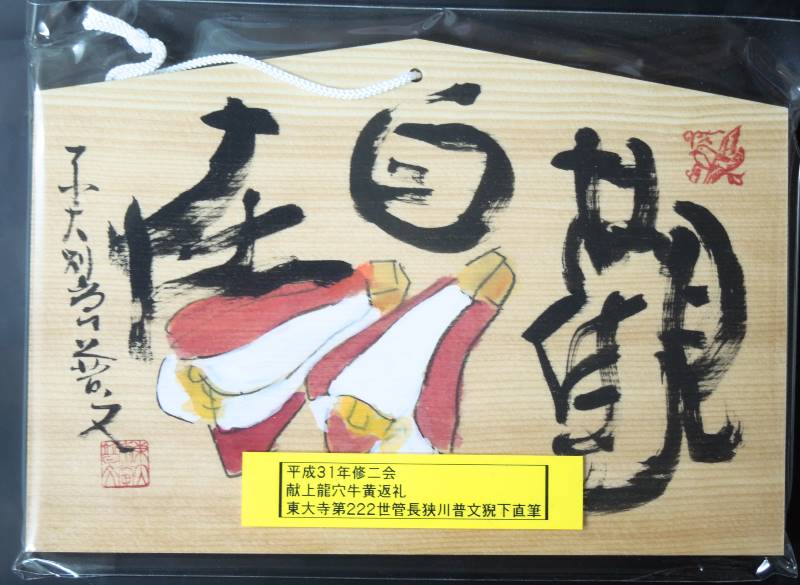 觀自在
東大別當普文
平成31年修二会
献上龍穴牛黄返礼
東大寺第222世管長狭川普文猊下直筆